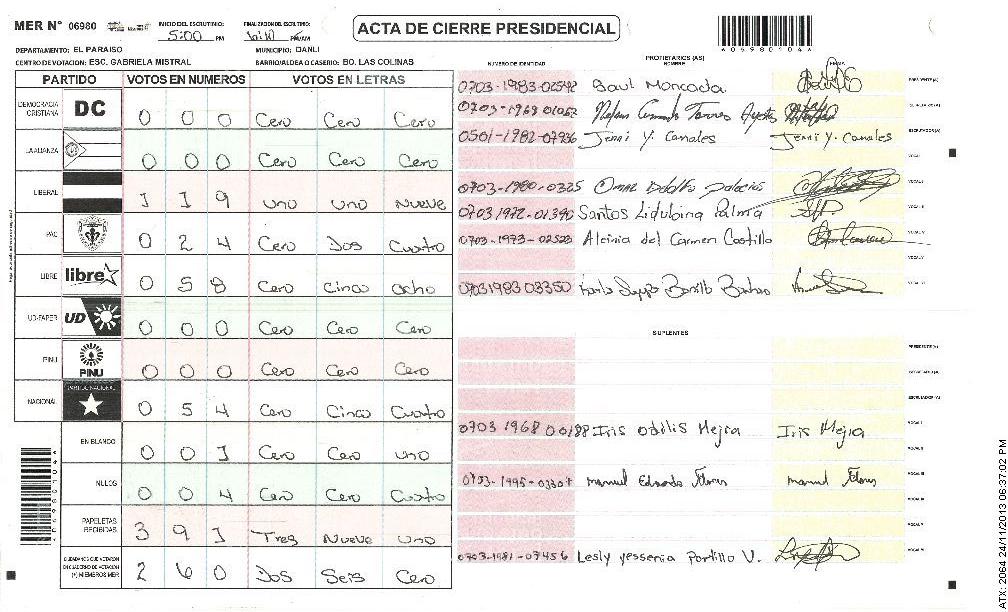 MER N° 06980 INICIO DEL ESCRUTINIO: 5:00 PM FINALIZACION DEL ESCRUTINIO: PM/AM
ACTA DE CIERRE PRESIDENCIAL
40698010 4
DEPARTAMENTO: EL PARAISO MUNICIPIO: DANLI
CENTRO DE VOTACION: ESC. GABRIELA MISTRAL BARRIO/ALDEA O CASERIO: BO. LAS COLINAS
PARTIDO VOTOS EN NUMEROS VOTOS EN LETRAS
DEMOCRACIA CRISTIANA DC 0 0 0 Cero Cero Cero
LA ALIANZA 0 0 0 Cero Cero Cero
LIBERAL 1 1 9 uno uno Nueve
PAC 0 2 4 Cero Dos Cuatro
LIBRE libre 0 5 8 Cero Cinco ocho
UD-FAPER UD 0 0 0 Cero Cero Cero
PINU PINU 0 0 0 Cero Cero Cero
NACIONAL PARTIDO NACIONAL 0 5 4 Cero Cinco Cuatro
EN BLANCO 0 0 1 Cero Cero uno
NULOS 0 0 4 Cero Cero Cuatro
PAPELETAS RECIBIDAS 3 9 1 Tres Nueve uno
CIUDADANOS QUE VOTARON EN CUADERNO DE VOTACION (+) MIEMBROS MER 2 6 0 Dos Seis Cero
PROPIETARIOS (AS)
NUMERO DE IDENTIDAD NOMBRE FIRMA
0703-1983-02598 Saul Moncada PRESIDENTE(A)
0703-1968 01062 Torres SECRETARIO(A)
0501-1982-07936 Jenni Y. Canales Jenni Y. Canales ESCRUTADOR(A)
VOCAL I
0703-1980-0325 Omar Adolfo Palacios VOCAL II
0703 1972-01390 Santos Lidubina Palma VOCAL III
0703-1973-02523 Alcinia del Carmen Castillo VOCAL IV
VOCAL V
0703198303350 Karla VOCAL VI
SUPLENTES
PRESIDENTE(A)
SECRETARIO(A)
ESCRUTADOR(A)
0703 1968 00188 Iris Odilis Mejia Iris Mejia VOCAL I
VOCAL II
0703-1995-03307 Manuel Eduardo Flores Manuel Flores VOCAL III
VOCAL IV
VOCAL V
0703-1981-03456 Lesly Yessenia Portillo V. VOCAL VI
ATX: 2064 24/11/2013 06:37:02 PM